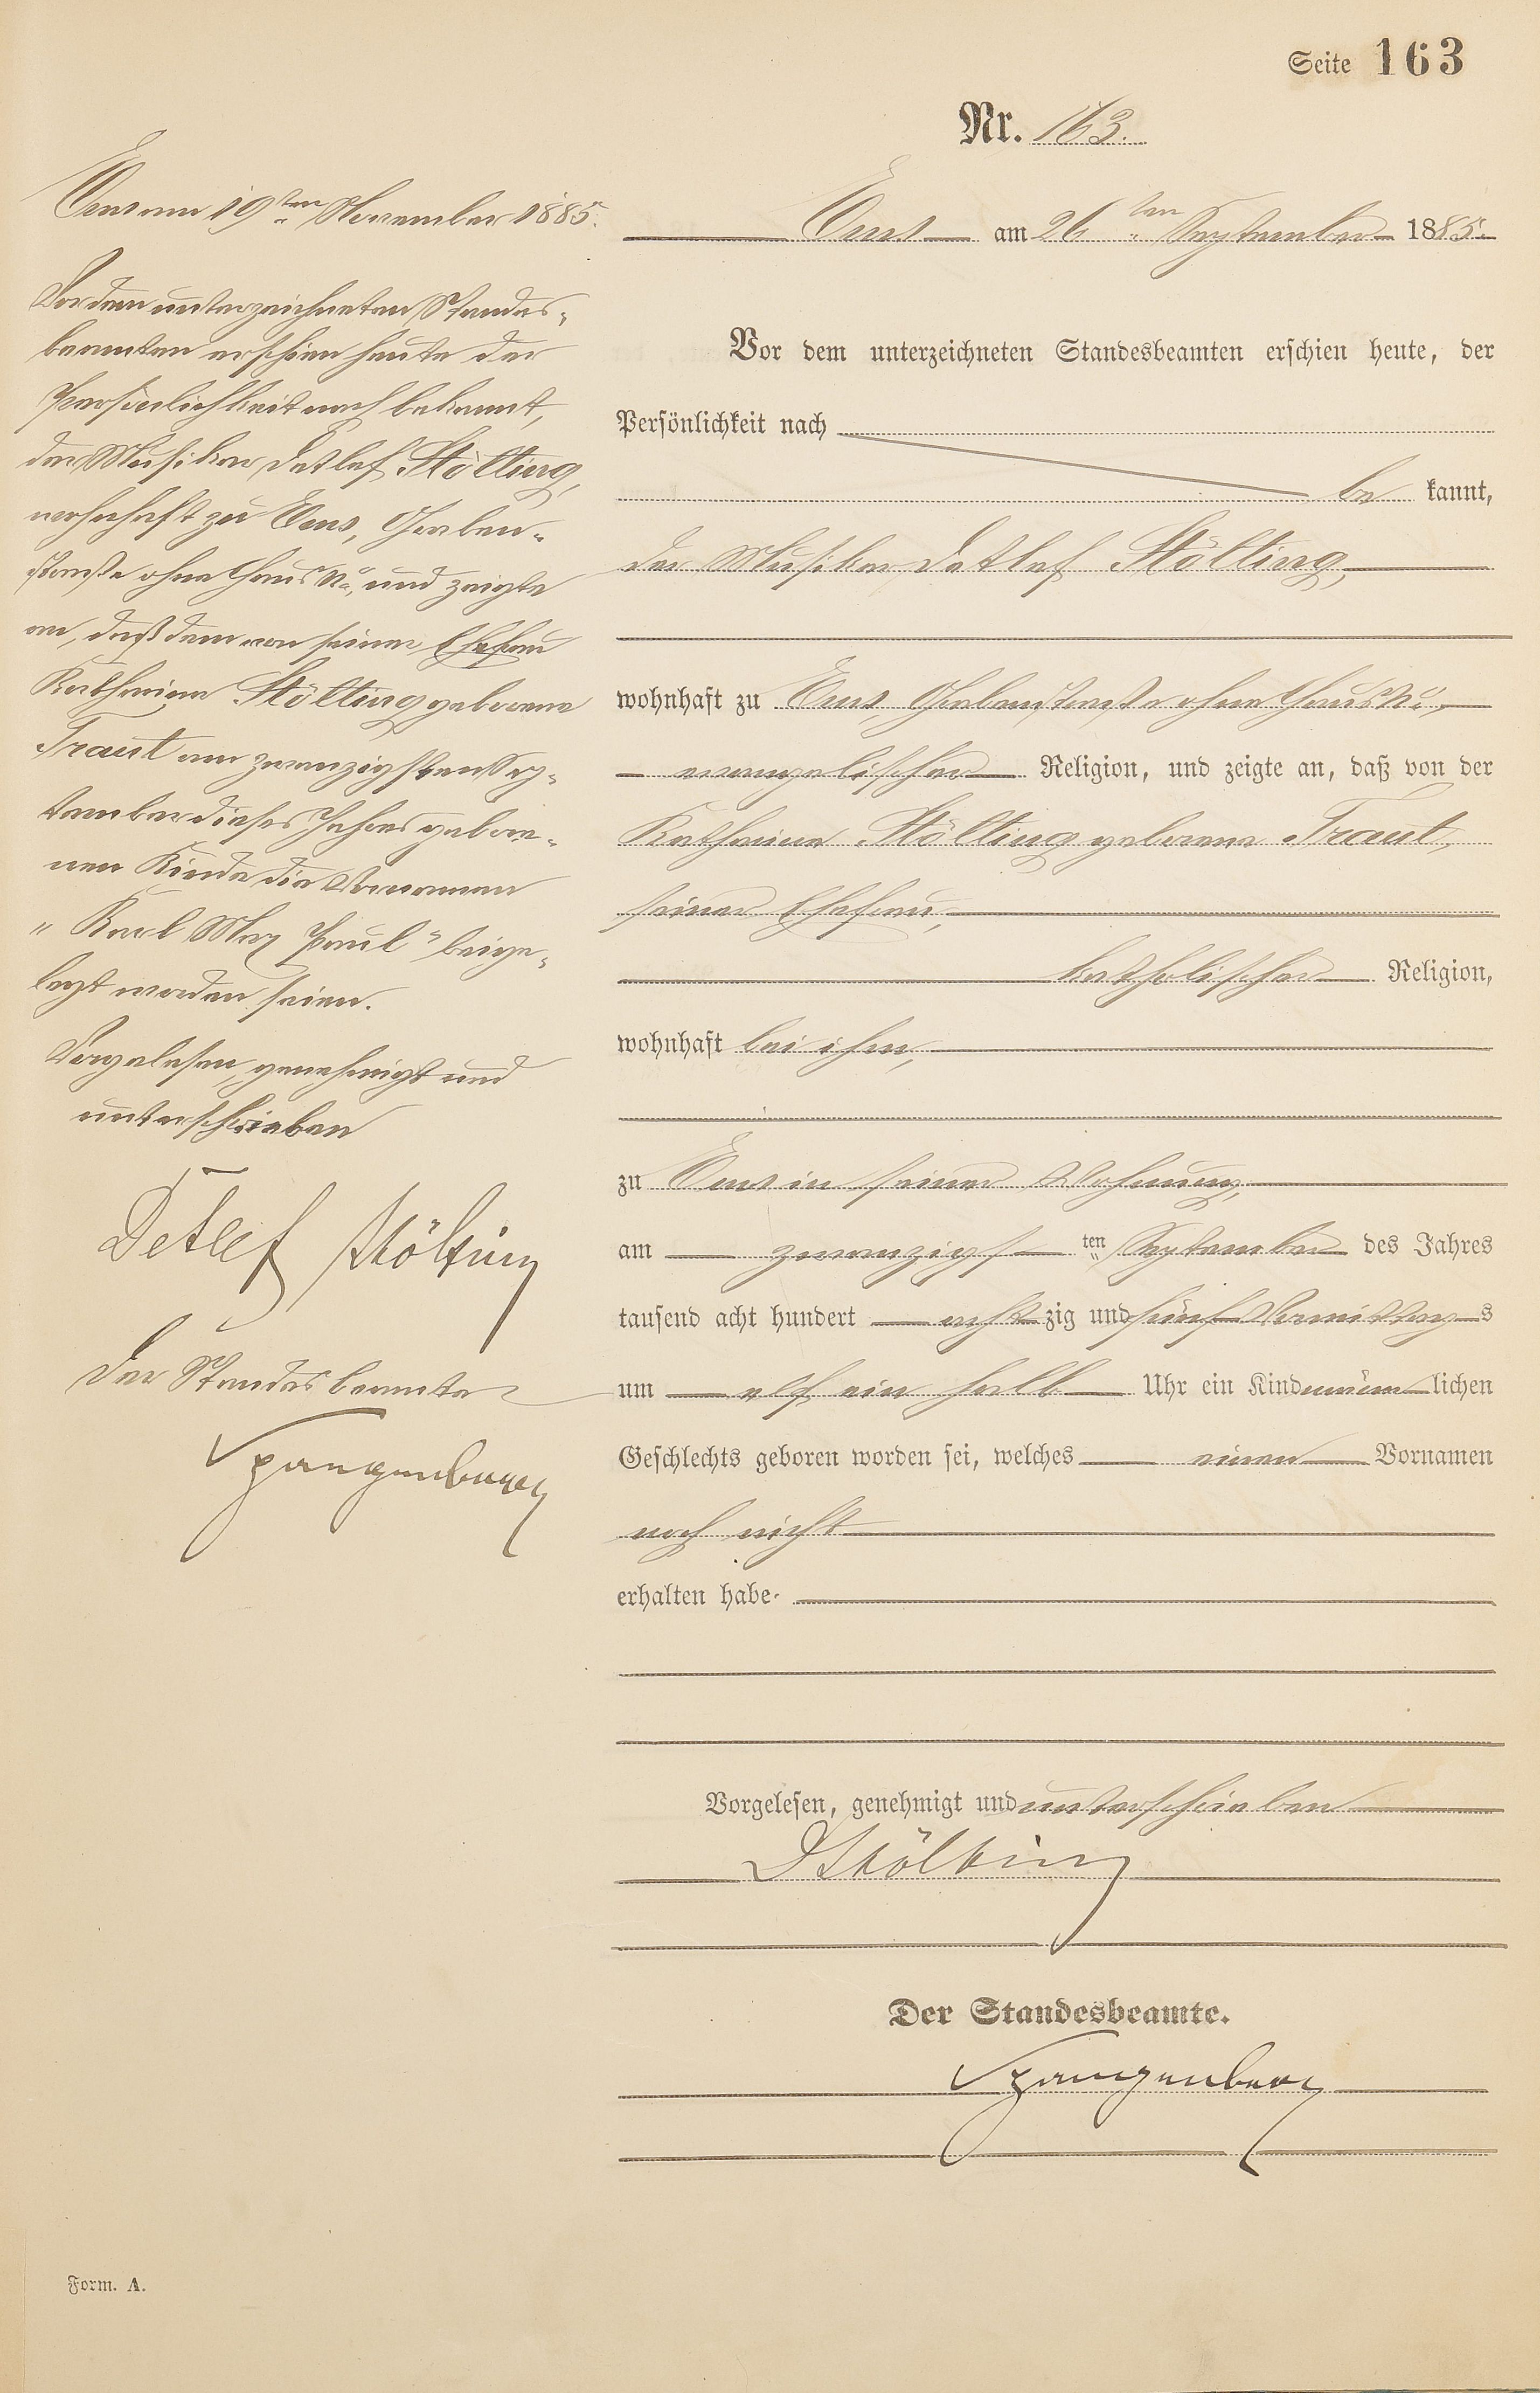 Seite 163
Nr. 163.
Ems am 26ten September 1885.
Vor dem unterzeichneten Standesbeamten erschien heute, der
Persönlichkeit nach
be kannt,
der Musiker Detlef Stölting,
wohnhaft zu Ems, Grabenstraße ohne Haus No.,
evangelischer Religion, und zeigte an, daß von der
Katharina Stölting geborene Traut,
seiner Ehefrau,
katholischer Religion,
wohnhaft bei ihm,
zu Ems in seiner Wohnung,
am zwanzigsten September des Jahres
tausend acht hundert achtzig und fünf Vormittags
um elf ein halb Uhr ein Kind männlichen
Geschlechts geboren worden sei, welches einen Vornamen
noch nicht
erhalten habe.
Vorgelesen, genehmigt und unterschrieben
D Stölting
Der Standesbeamte.
Spangenberg
Ems am 19ten November 1885.
Vor dem unterzeichneten Standes-
beamten erschien heute der
Persönlichkeit nach bekannt,
der Musiker Detlef Stölting,
wohnhaft zu Ems, Graben-
straße ohne Haus No., und zeigte
an, daß dem von seiner Ehefrau
Katharina Stölting geborene
Traut am zwanzigsten Sep-
tember dieses Jahres gebore-
nen Kinde die Vornamen
„Karl Max Paul" beige-
legt worden seien.
Vorgelesen, genehmigt und
unterschrieben
Detlef Stölting
Der Standesbeamte
Spangenberg
Form. A.